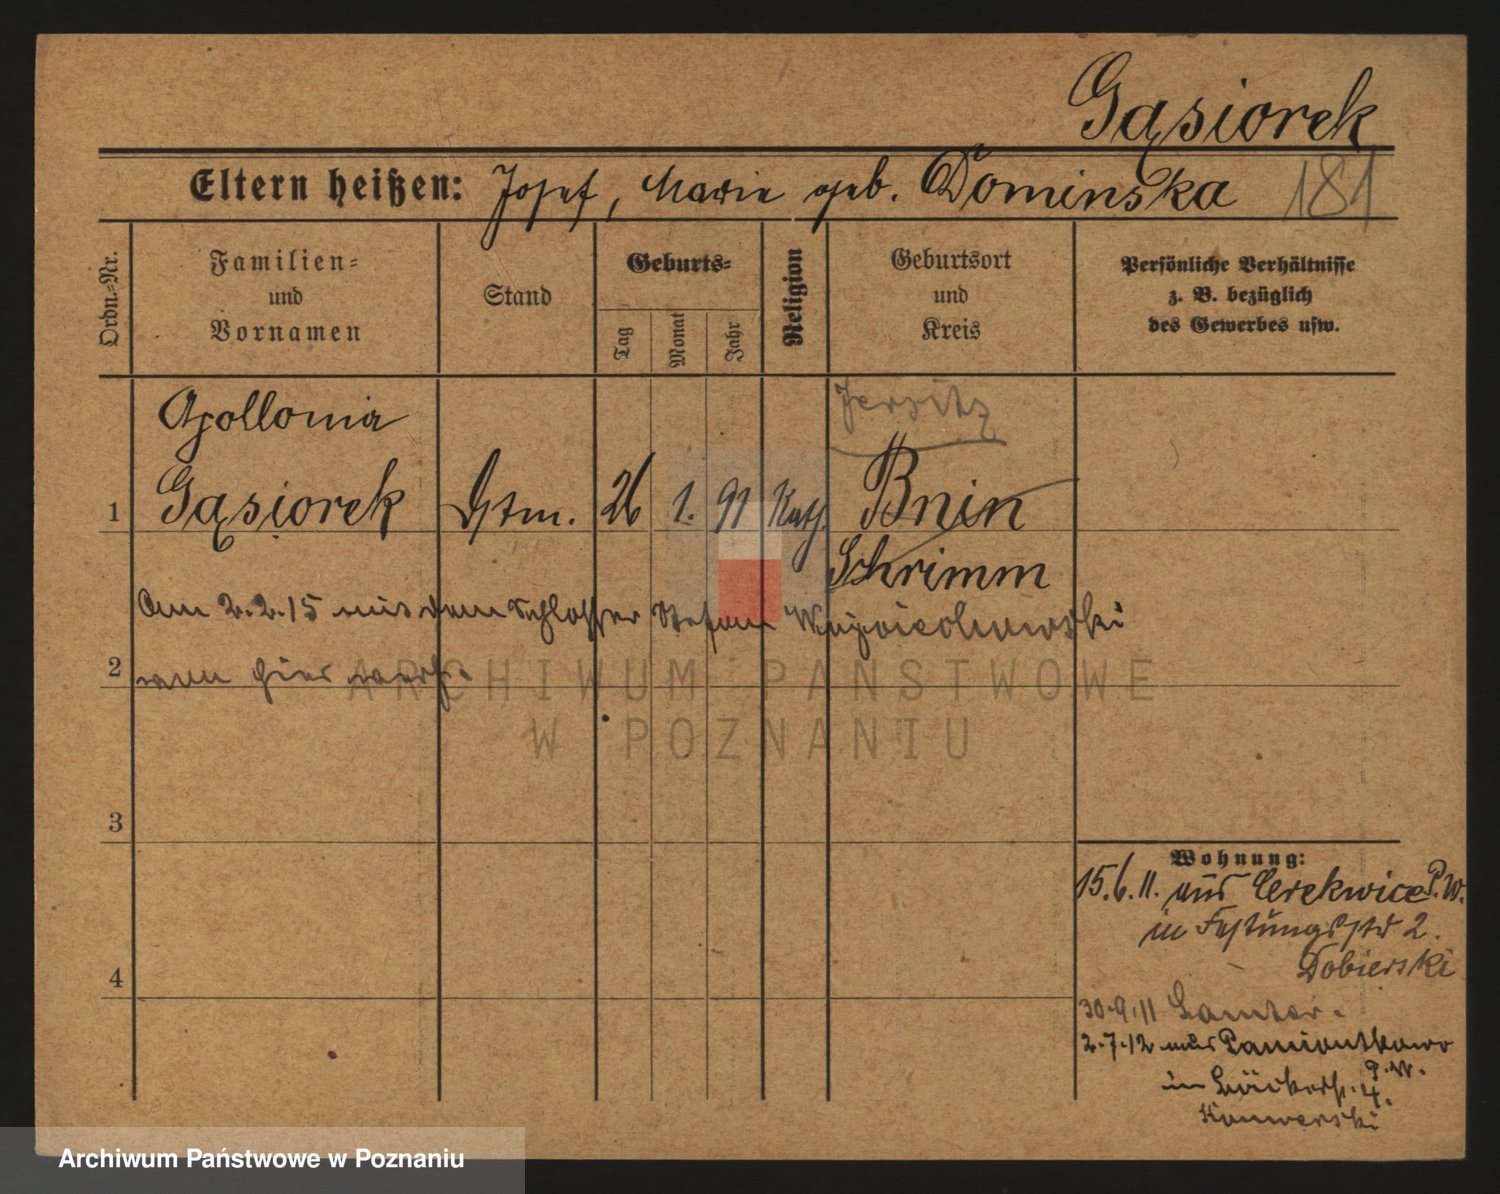 Gąsiorek
Eltern heißen: Josef, Marie geb. Dominska 181
Ordn.=Nr.
Familien=
und
Vornamen
Stand
Geburts=
Tag
Monat
Jahr
Religion
Geburtsort
und
Kreis
Persönliche Verhältnisse
z. B. bezüglich
des Gewerbes usw.
Apollonia
Jersitz
1 Gąsiorek 26 1. 91 Kath. Bnin
Schrimm
Am 2.2.15 mit dem Schlosser Stefan
2 hier verh.
3
4
Wohnung:
15.6.11. aus Cerekwice P.W.
in Festungsstr 2.
Dobierski
30.9.11 Samter.
2.7.12 aus Pamiontkowo
P.W.
in Bäckerstr. 4.
Konwerski
ARCHIWUM PAŃSTWOWE
W POZNANIU
Archiwum Państwowe w Poznaniu